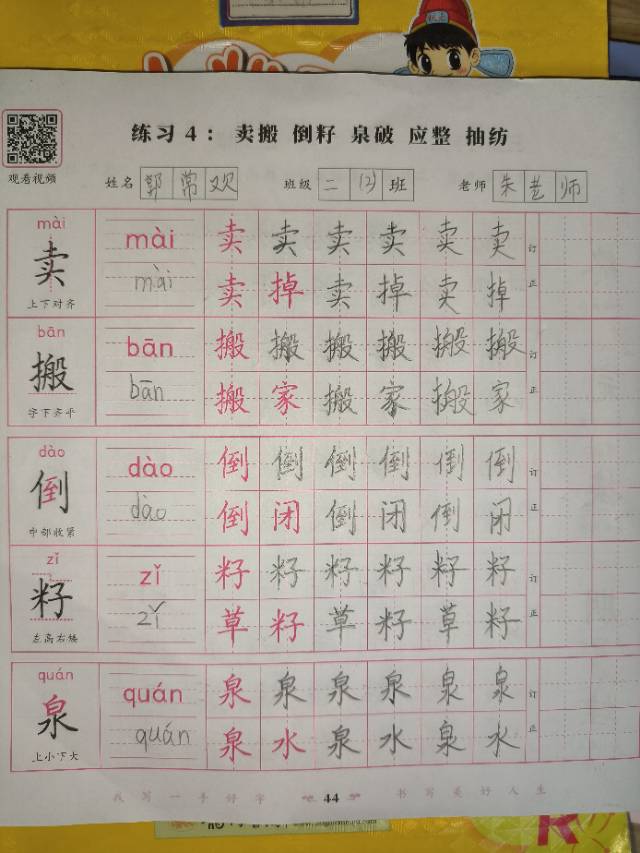 练习4： 卖搬 倒籽 泉破 应整 抽纺
观看视频
姓名 郭常欢 班级 二(2)班 老师 朱老师
mài mài 卖 卖 卖 卖 卖 卖 订
卖 上下对齐 mài 卖 掉 卖 掉 卖 掉 正
bān bān 搬 搬 搬 搬 搬 搬 订
搬 字下齐平 bān 搬 家 搬 家 搬 家 正
dào dào 倒 倒 倒 倒 倒 倒 订
倒 中部收紧 dào 倒 闭 倒 闭 倒 闭 正
zǐ zǐ 籽 籽 籽 籽 籽 籽 订
籽 左高右矮 zǐ 草 籽 草 籽 草 籽 正
quán quán 泉 泉 泉 泉 泉 泉 订
泉 上小下大 quán 泉 水 泉 水 泉 水 正
我写一手好字 44 书写美好人生